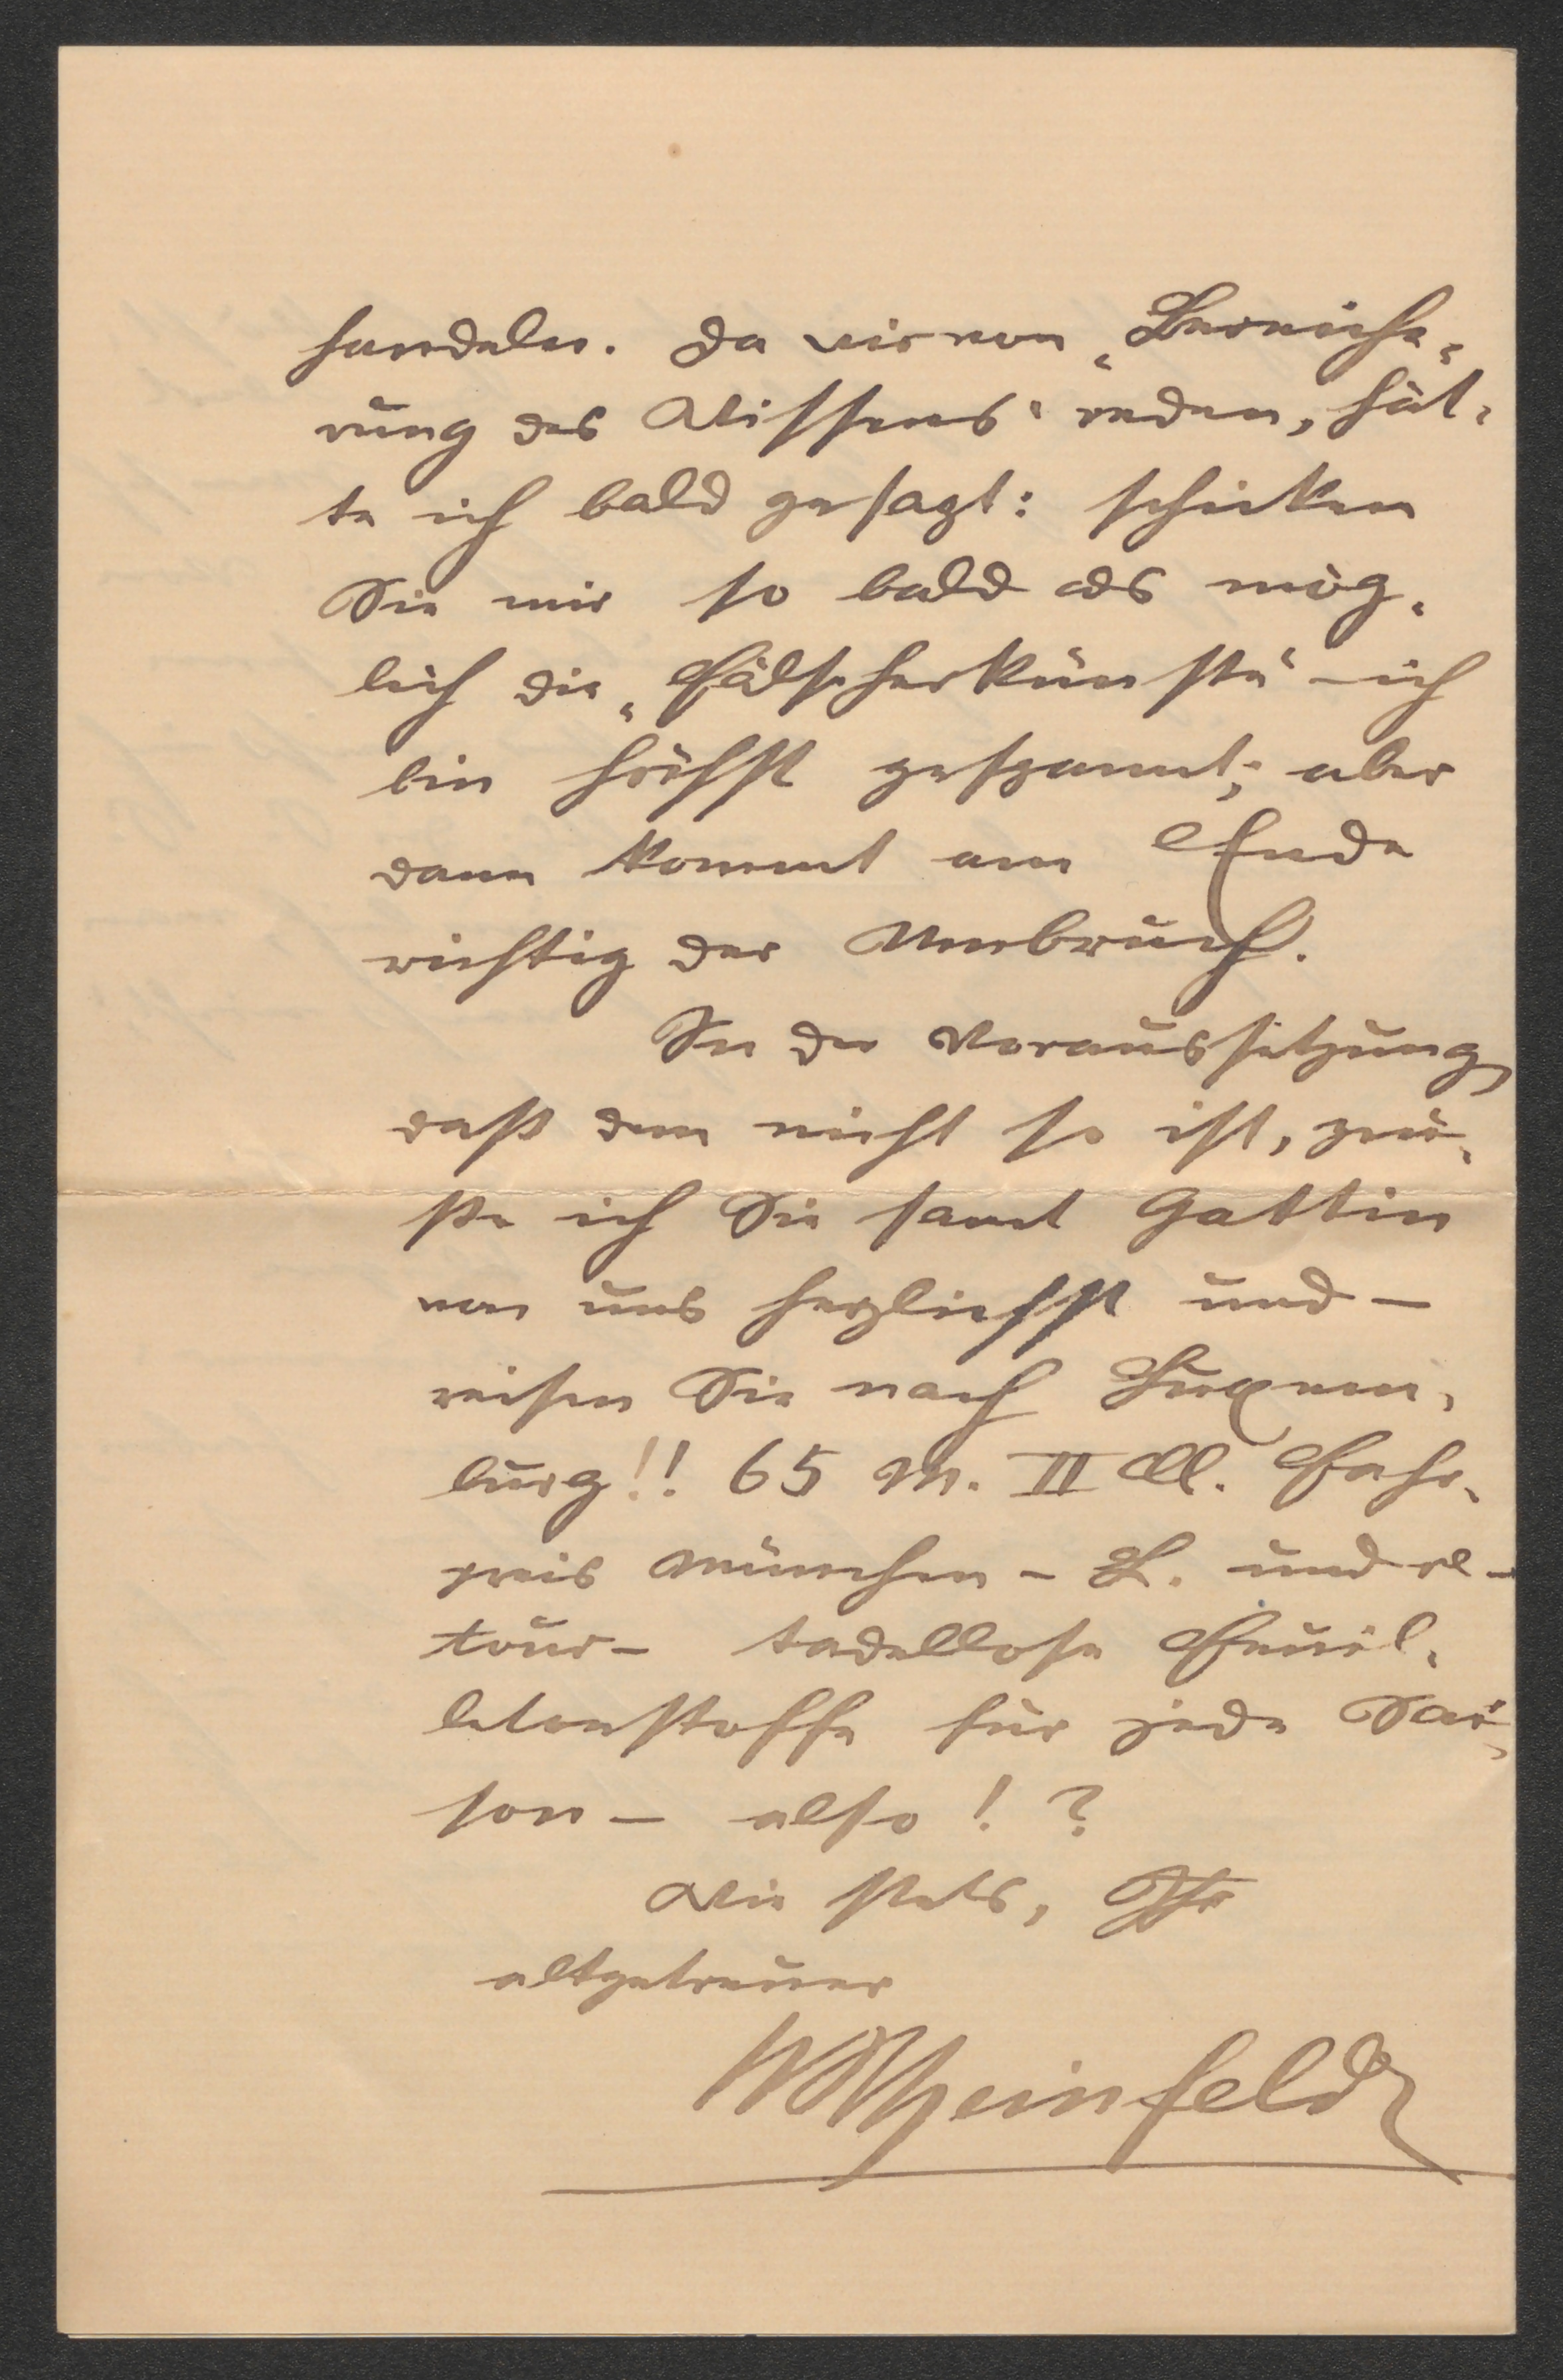 handeln. Da wir von „Bereiche-
rung des Wissens“ reden, hät-
te ich bald gesagt: schicken
Sie mir so bald als mög-
lich die „Fälscherkünste“ – ich
bin höchst gespannt; aber
dann kommt am Ende
richtig der Umbruch.
In der Voraussetzung,
daß dem nicht so ist, grü-
ße ich Sie samt Gattin
von uns herzlichst und –
reisen Sie nach Luxem-
burg!! 65 M. II Cl. Fahr-
preis München – L. und re-
tour – tadellose Feuil-
letonstoffe für jede Sai-
son – also!?
Wie stets, Ihr
altgetreuer
WRheinfeld